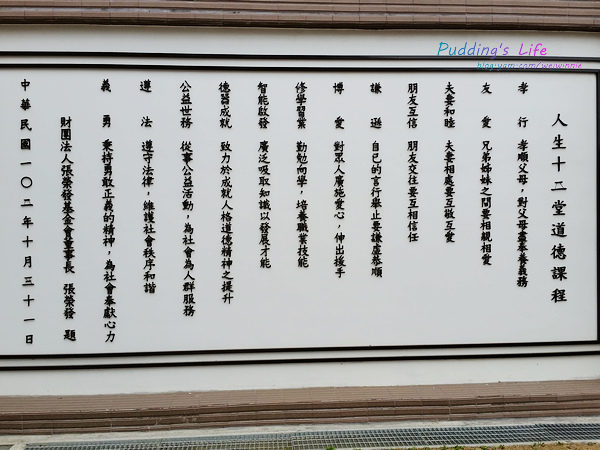 Pudding's Life
blog.yam.com/weiwinnie
人生十二堂道德課程
孝行 孝順父母，對父母盡奉養義務
友愛 兄弟姊妹之間要相親相愛
夫妻和睦 夫妻相處要互敬互愛
朋友互信 朋友交往要互相信任
謙遜 自己的言行舉止要謙虛恭順
博愛 對眾人廣施愛心，伸出援手
修學習業 勤勉向學，培養職業技能
智能啟發 廣泛吸取知識以發展才能
德器成就 致力於成就人格道德精神之提升
公益世務 從事公益活動，為社會為人群服務
遵法 遵守法律，維護社會秩序和諧
義勇 秉持勇敢正義的精神，為社會奉獻心力
財團法人張榮發基金會董事長 張榮發 題
中華民國一〇二年十月三十一日